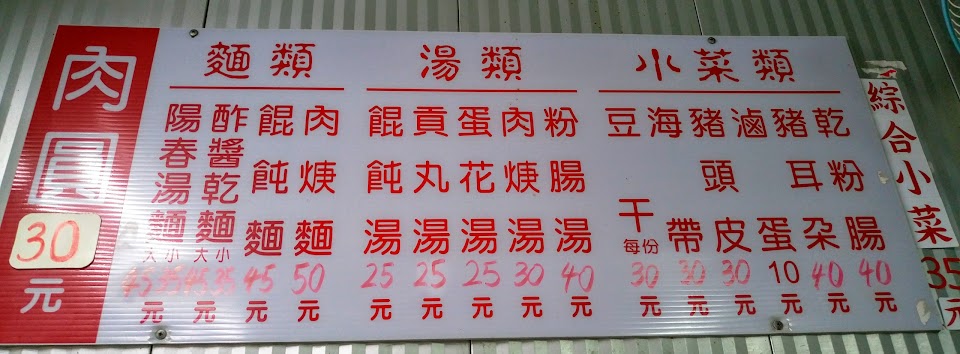 肉圓
30
元
麵類
陽春湯麵
大小
45 35
元
酢醬乾麵
大小
45 35
元
餛飩麵
45
元
肉焿麵
50
元
湯類
餛飩湯
25
元
貢丸湯
25
元
蛋花湯
25
元
肉焿湯
30
元
粉腸湯
40
元
小菜類
豆干
每份
30
元
海帶
30
元
豬頭皮
30
元
滷蛋
10
元
豬耳朵
40
元
乾粉腸
40
元
綜合小菜
35
元